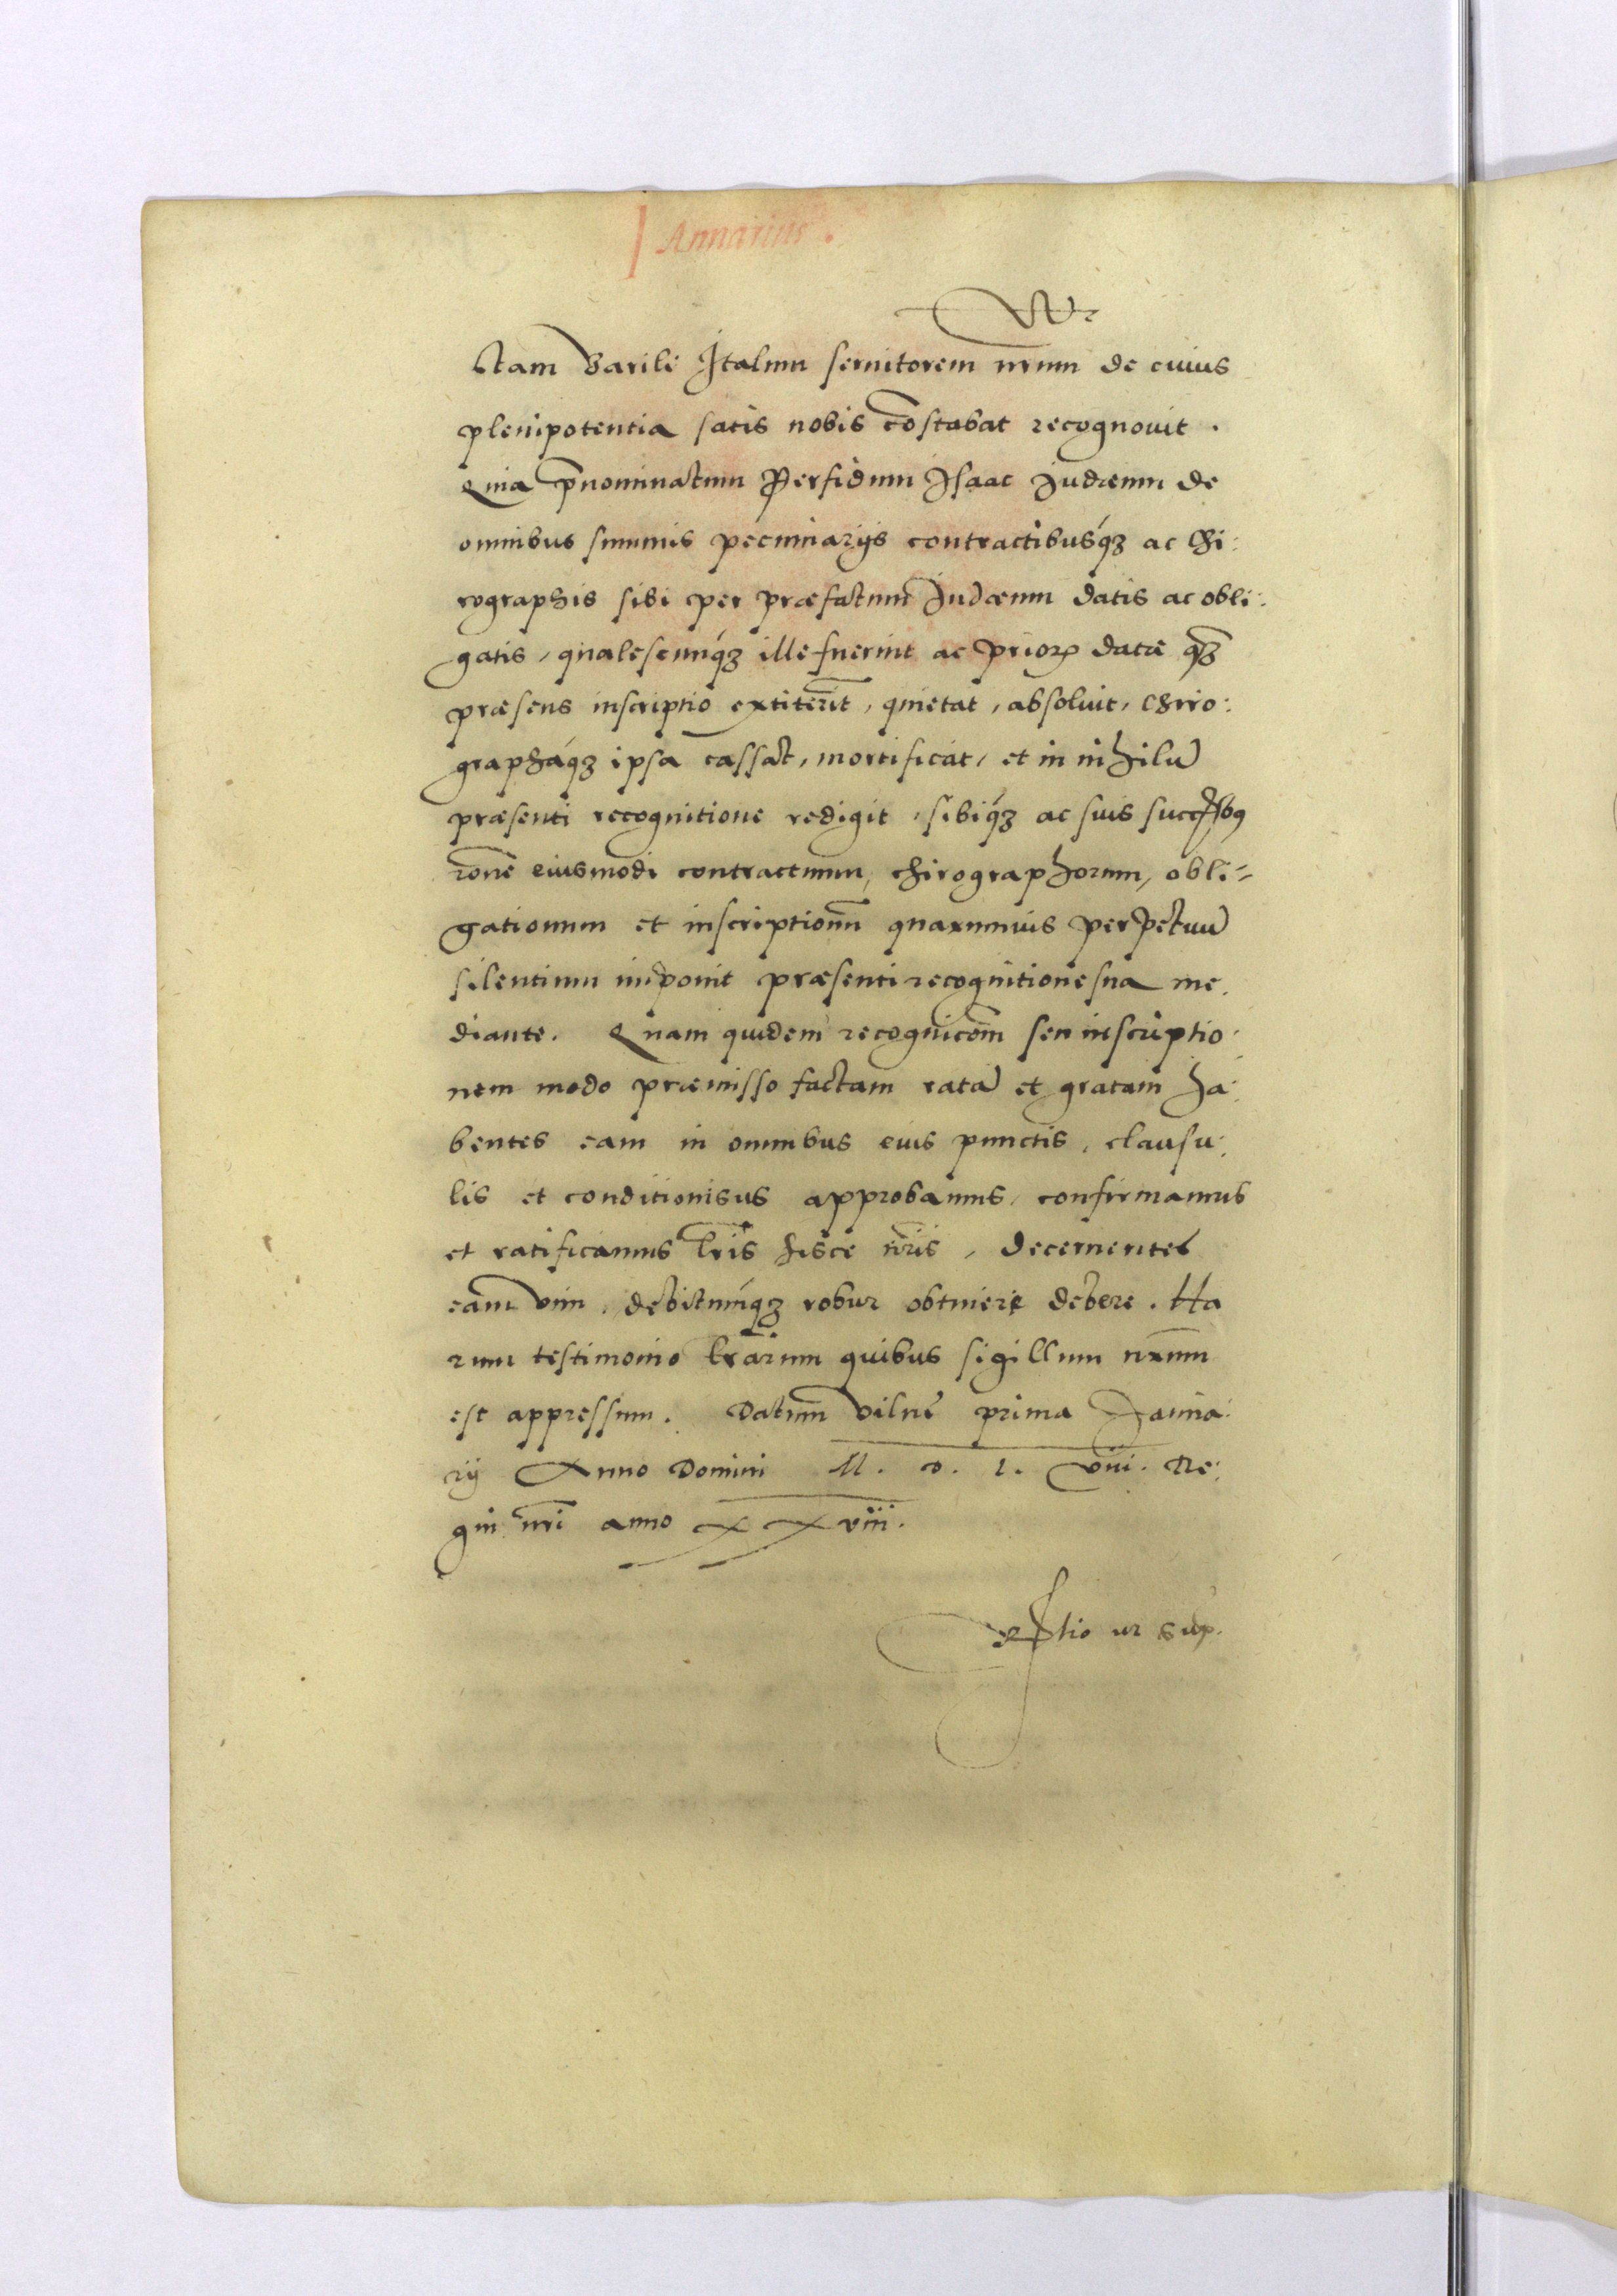 Annarius.
ctam Barili Italum seruitorem nrum de cuius
plenipotentia satis nobis constabat recognouit.
Quia pnominatum Perfidum Isaac Judæum de
omnibus summis pecuniarijs contractibusq́ȝ ac chi:
rographis sibi per præfatum Judæum datis ac obli:
gatis, qualescunq́ȝ ille fuerint ac prior datæ qȝ
præsens inscriptio extiterit, quietat, absoluit, chiro:
grapháqȝ ipsa cassat, mortificat, et in nihilū
præsenti recognitione redigit, sibiq́ȝ ac suis
rone eiusmodi contractuum, chirographorum, obli=
gationum et inscriptionū quarumuis perpetuū
silentium imponit præsenti recognitione sua me.
diante. Quam quidem recognicom seu inscriptio:
nem modo præmisso factam ratā et gratam ha:
bentes eam in omnibus eius punctis, clausu:
lis et conditionibus approbamus, confirmamus
et ratificamus lris hisce nris, decernentes
eam vim, debitumq́ȝ robur obtinere debere. Ha
rum testimonio lrarum quibus sigillum nrum
est appressum. Datum Vilnæ prima Janua:
rij Anno Domini M. D. L. viii. Re:
gni nri anno XXviii.
Relio ut sup.